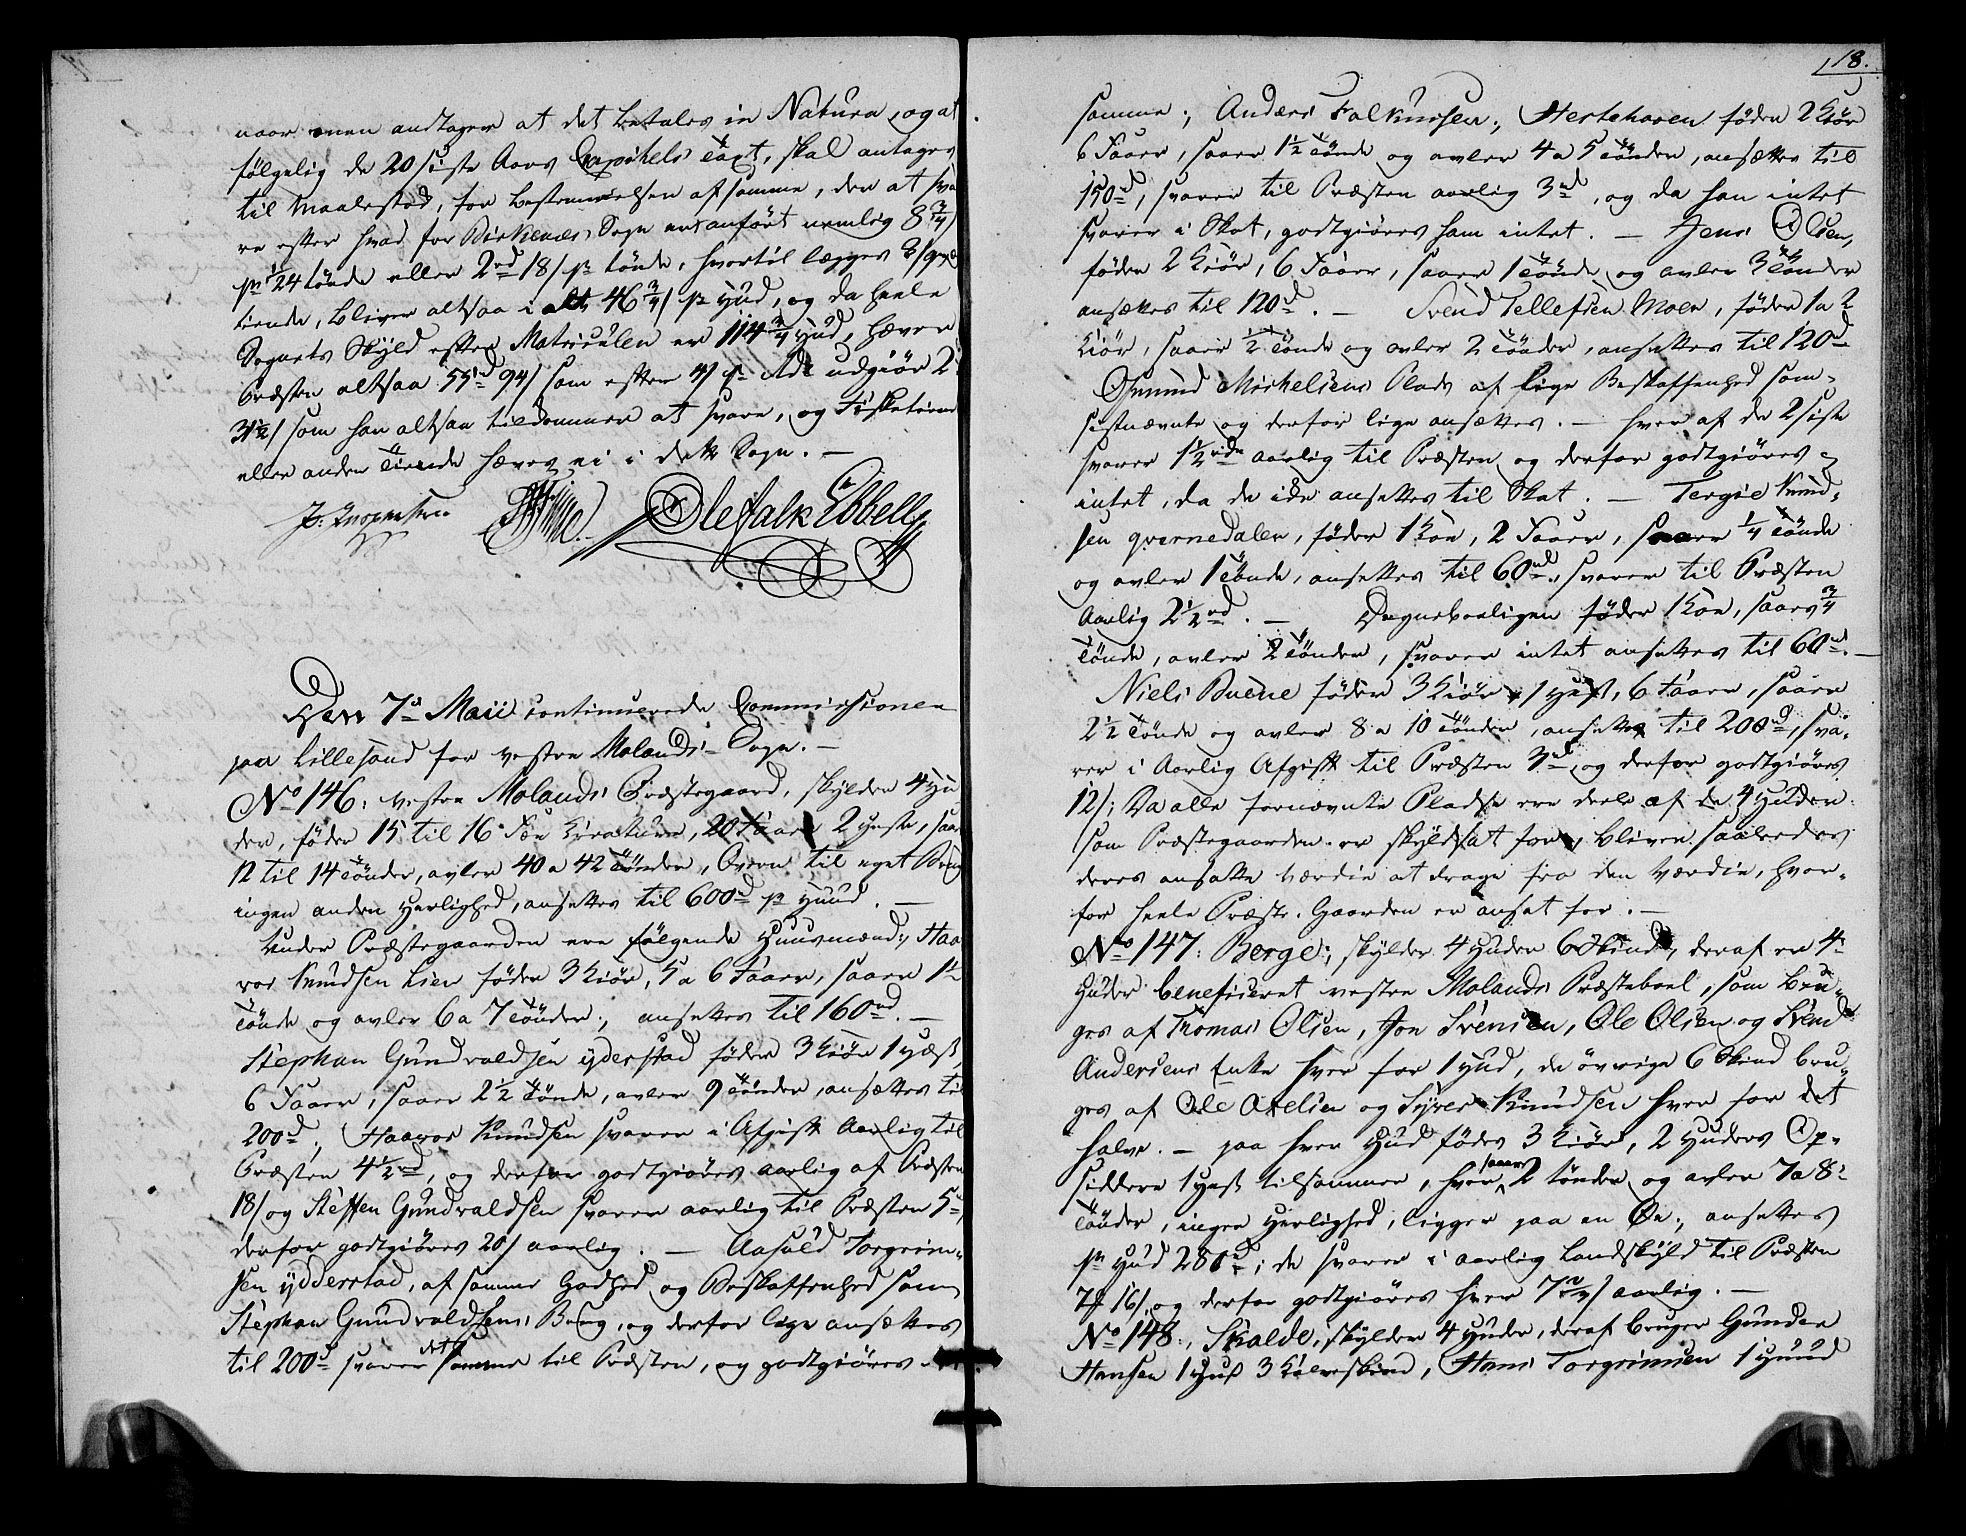 naar man antager at det betales in Natura, og at
følgelig de 20 siste Aars Capitels Taxt, skal antages
til Maalestok, for bestemmelsen af samme, den at sva
re efter hvad for Birkenes Sogn er anført nemlig 8 3/4 /
pr 1/24 tønde eller 2rd 18/ pr tønde, hvortil lægges 8/ qvæg
tiende, bliver altsaa i alt 46 3/4 / pr Hud, og da heele
Sognets Skyld efter Matriculen er 114 3/4 Hud, hæver
Præsten altsaa 55rd 94/ som efter 4/ pr Rdr udgiør 2
31 1/2/ som han altsaa tildømmes at svare, og Fisketiende
eller anden Tiende hæves ei i dette Sogn. —
Ole Falk Ebbell
Den 7de Maii continuerede Commissionen
paa Lillesand for vestre Molands Sogn. —
No 146: vestre Molands Præstegaard, skylder 4 Hu
der, føder 15 til 16 Fæe Creature, 20 Faar 2 Heste, saar
12 til 14 Tønder, avler 40 a 42 Tønder, Qvern til eget Brug
ingen anden Herlighed, ansettes til 600rd pr Huud. —
Under Præstegaarden ere følgende Huusmænd; Haa
vor Knudsen Lien føder 3 Kiør, 5 a 6 Faar, saar 1 1/2
Tønde og avler 6 a 7 Tønder, ansettes til 160rd. —
Stephan Gundvaldsen yderstad føder 3 Kiør 1 Hest
6 Faar, saar 2 1/2 Tønde, avler 9 Tønder, ansættes til
200rd. Haavor Knudsen svarer i Afgift Aarlig til
Præsten 4 1/2rd, og derfor godtgiøres aarlig af Præsten
18/ og Steffen Gundvaldsen svarer aarlig til Præsten 5rd
derfor godtgiøres 20/ aarlig. — Aasuld Torgrim-
sen ydderstad, af samme Godhed og Beskaffenhed som
Stephan Gundvaldsens Brug, og derfor lige ansættes
til 200rd svarer det samme til Præsten, og godtgiøres
18.
samme; Anders Falkmosen, Hestehaven føder 2 Kiør
6 Faar, saar 1 1/2 Tønde og avler 4 a 5 Tønder, ansettes til
150rd, svarer til Præsten aarlig 3rd, og da han intet
svarer i Skat, godtgiøres ham intet. — Jens Olsen,
føder 2 Kiør, 6 Faar, saar 1 Tønde og avler 3 Tønder
ansettes til 120rd. — Svend Tellefsen Moen, føder 1 a 2
Kiør, saar 1/2 Tønde og avler 2 Tønder, ansettes til 120rd
Osmund Michelsens Plads af lige Beskaffenhed som
sistnævnte og derfor lige ansættes. — hver af de 2 siste
svarer 1 1/2 rdr aarlig til Præsten og derfor godtgiøres
intet, da de ikke ansettes til Skat. — Tergie Knud-
sen qvernedalen, føder 1 Koe, 2 Faar, saar 1/4 Tønde
og avler 1 Tønde, ansettes til 60rd, svarer til Præsten
Aarlig 2 1/2rd. — Degneboeligen føder 1 Koe, saar 3/4
Tønde, avler 2 Tønder, svarer intet ansettes til 60rd. —
Niels Buene føder 3 Kiør 1 Hest, 6 Faar, saar
2 1/2 Tønde og avler 8 a 10 Tønder, ansettes til 200rd, sva-
rer i Aarlig Afgift til Præsten 3rd, og derfor godtgiøres
12/; Da alle fornævnte Pladse ere deele af de 4 Huder
som Præstegaarden er skyldsat for, bliver saaledes
deres ansatte værdie at drage fra den Værdie, hvor-
for heele Præste-Gaarden er ansat for. —
No 147: Berge; skylder 4 Huder 6 Skind, deraf er 4
Huder beneficeret vestre Molands Præsteboel, som bru-
ges af Thomas Olsen, Jon Svensen, Ole Olsen og Svend
Andersens Enke hver for 1 Hud, de øvrige 6 Skind bru-
ges af Ole Axelsen og Syver Knudsen hver for det
halve. — paa hver Hud fødes 3 Kiør, 2 Huders Op-
siddere 1 Hest tilsammen, hver saaer 2 tønder og avler 7 a 8
Tønder, ingen Herlighed, ligger paa en Øe, ansettes
pr Hud 280rd; de svarer i aarlig Landskyld til Præsten
7 16/, og derfor godtgiøres hver aarlig. —
No 148: Skalde, skylder 4 Huder, deraf bruger Gunder
Hansen 1 Hud 3 Kalveskind, Hans Torgrimsen 1 Huud